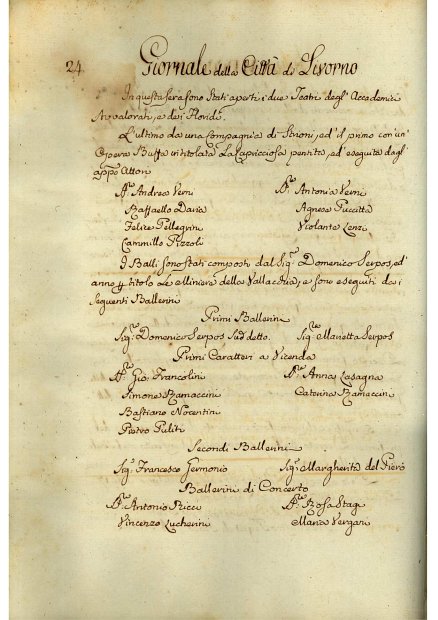 24 Giornale della Città di Livorno
In questa sera sono stati aperti i due Teatri degl' Accademici
Avvalorati, e dei Floridi.
L'ultimo da una Compagnia di Strioni, ed il primo con un'
Opera Buffa intitolata La Capricciosa pentita, ed eseguita dagl'
app.o Attori
Andrea Verni Antonia Verni
Raffaello Davia Agnese Puccitta
Felice Pellegrini Violante Lenzi
Cammillo Pizzoli
I Balli sono stati composti dal Sig.e Domenico Serpos, ed'
anno p titolo Le Miniere della Vallacchia, e sono eseguiti da i
seguenti Ballerini
Primi Ballerini
Sig.e Domenico Serpos sud.detto. Sig.ra Marietta Serpos
Primi Caratteri a Vicenda
Gio: Francolini Anna Lasagna
Simone Ramaccini Caterina Ramaccini
Bastiano Nocentini
Pietro Puliti
Secondi Ballerini
Sig.e Francesco Sermonio Sig.ra Margherita del Piero
Ballerini di Concerto
Antonio Ricci Rosa Stagi
Vincenzo Lucherini Maria Vergani